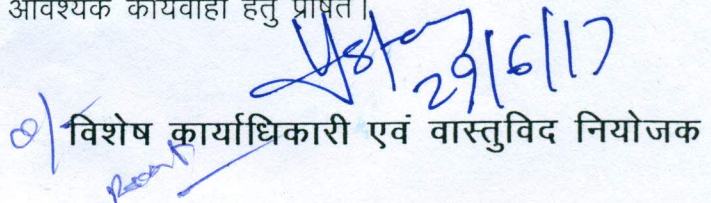 आवश्यक कार्यवाही हेतु प्रेषित।
29/6/17
विशेष कार्याधिकारी एवं वास्तुविद नियोजक